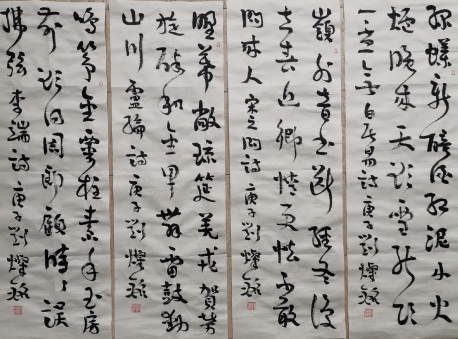 綠蟻新醅酒紅泥小火
爐晚來天欲雪能飲
一盃無白居易詩庚子劉燦銘
嶺外音書斷經冬復
立春近鄉情更怯不敢
問來人宋之問詩庚子劉燦銘
野幕敞瓊筵羌戎賀勞
旋醉和金甲舞雷鼓動
山川盧綸詩庚子劉燦銘
鳴箏金粟柱素手玉房
前欲得周郎顧時時誤
拂弦李端詩庚子劉燦銘